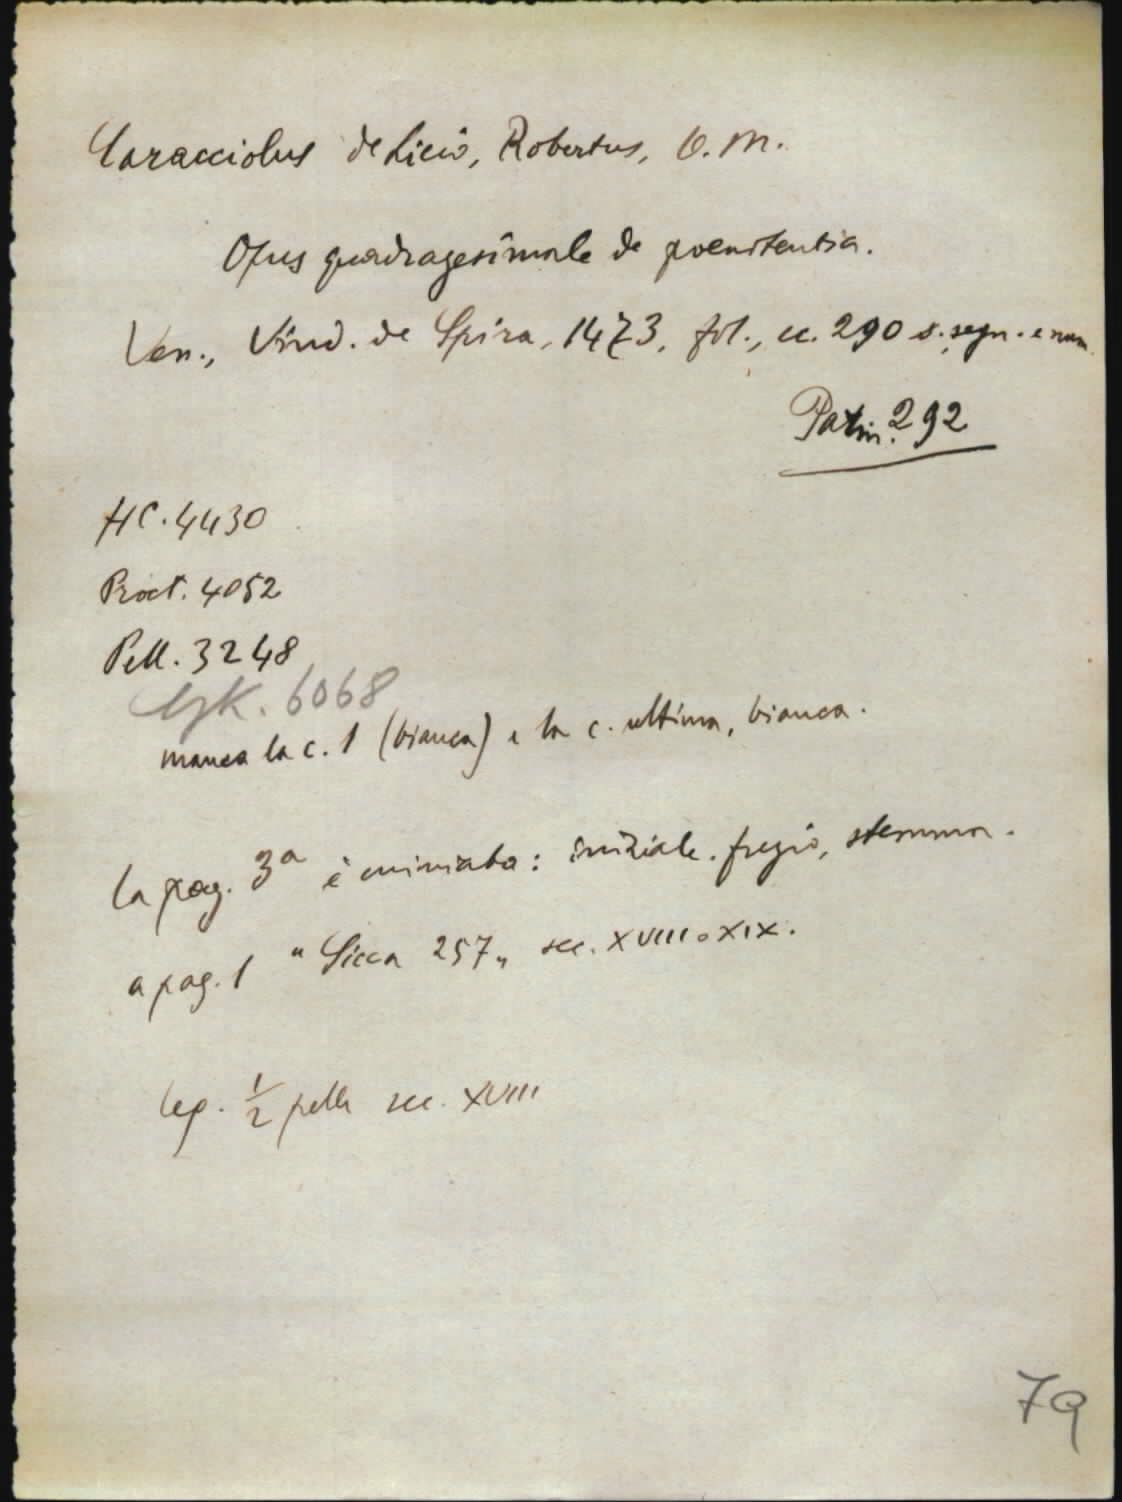 Caracciolus de Licio, Robertus, O. M.
Opus quadragesimale de poenitentia.
Ven., Vind. de Spira, 1473, fol., cc. 290 s. segn. e num.
Patin. 292
HC. 4430
Proct. 4052
Pell. 3248
Gk. 6068
manca la c. 1 (bianca) e la c. ultima, bianca.
la pag. 3a è miniata: iniziale. fregio, stemma.
a pag. 1 "Sicca 257„ sec. XVIII o XIX.
leg. ½ pelle sec. XVIII
79